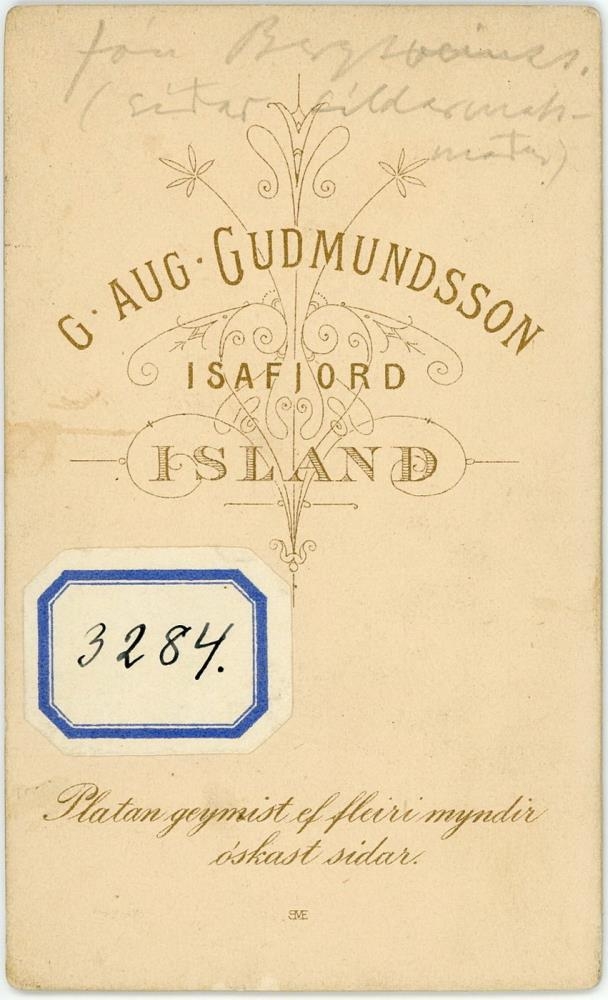 Jón Bergsveinss.
(síðar síldarmats-
maður)
G. AUG. GUDMUNDSSON
ISAFJORD
ISLAND
3284.
Platan geymist ef fleiri myndir
óskast sidar.